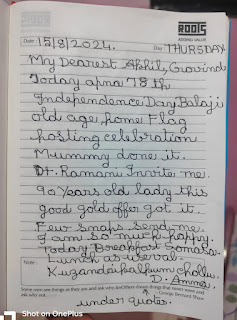 ROOTS
ADDING VALUE
Date 15/8/2024. Day THURSDAY
My Dearest Akhil, Govind
Today apna 78th
Independence Day Balaji
old age home Flag
hosting celebration
Mummy done it.
Dt. Ramani Invite me.
90 Years old lady this
good gold offer got it.
Few snaps send me.
I am so much happy.
Today Breakfast Samosa
Note: Lunch as useval.
Kugandaikalkum chollu.
D. Amma
Some men see things as they are and ask why. And others dream things that never were and
ask why not. George Bernard Shaw
under quotes.
Shot on OnePlus